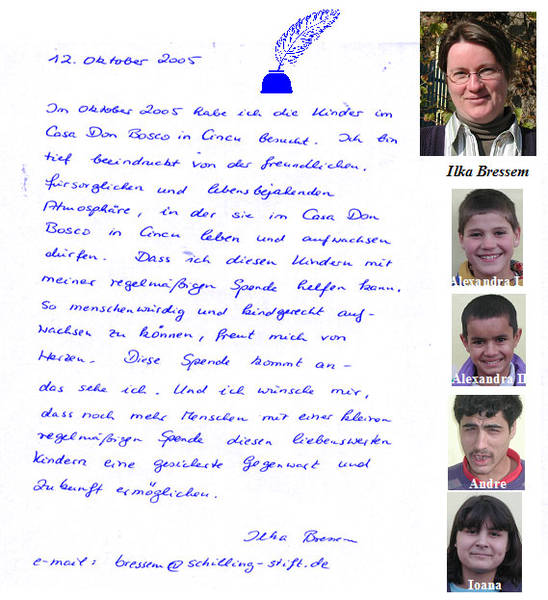 12. Oktober 2005
Im Oktober 2005 habe ich die Kinder im
Casa Don Bosco in Cincu besucht. Ich bin
tief beeindruckt von der freundlichen,
fürsorglichen und lebensbejahenden
Atmosphäre, in der sie im Casa Don
Bosco in Cincu leben und aufwachsen
dürfen. Dass ich diesen Kindern mit
meiner regelmäßigen Spende helfen kann,
so menschenwürdig und kindgerecht auf-
wachsen zu können, freut mich von
Herzen. Diese Spende kommt an -
das sehe ich. Und ich wünsche mir,
dass noch mehr Menschen mit einer kleinen
regelmäßigen Spende diesen liebenswerten
Kindern eine gesicherte Gegenwart und
Zukunft ermöglichen.
Ilka Bressem
e-mail: bressem@schilling-stift.de
Ilka Bressem
Alexandra I
Alexandra I
Andre
Ioana